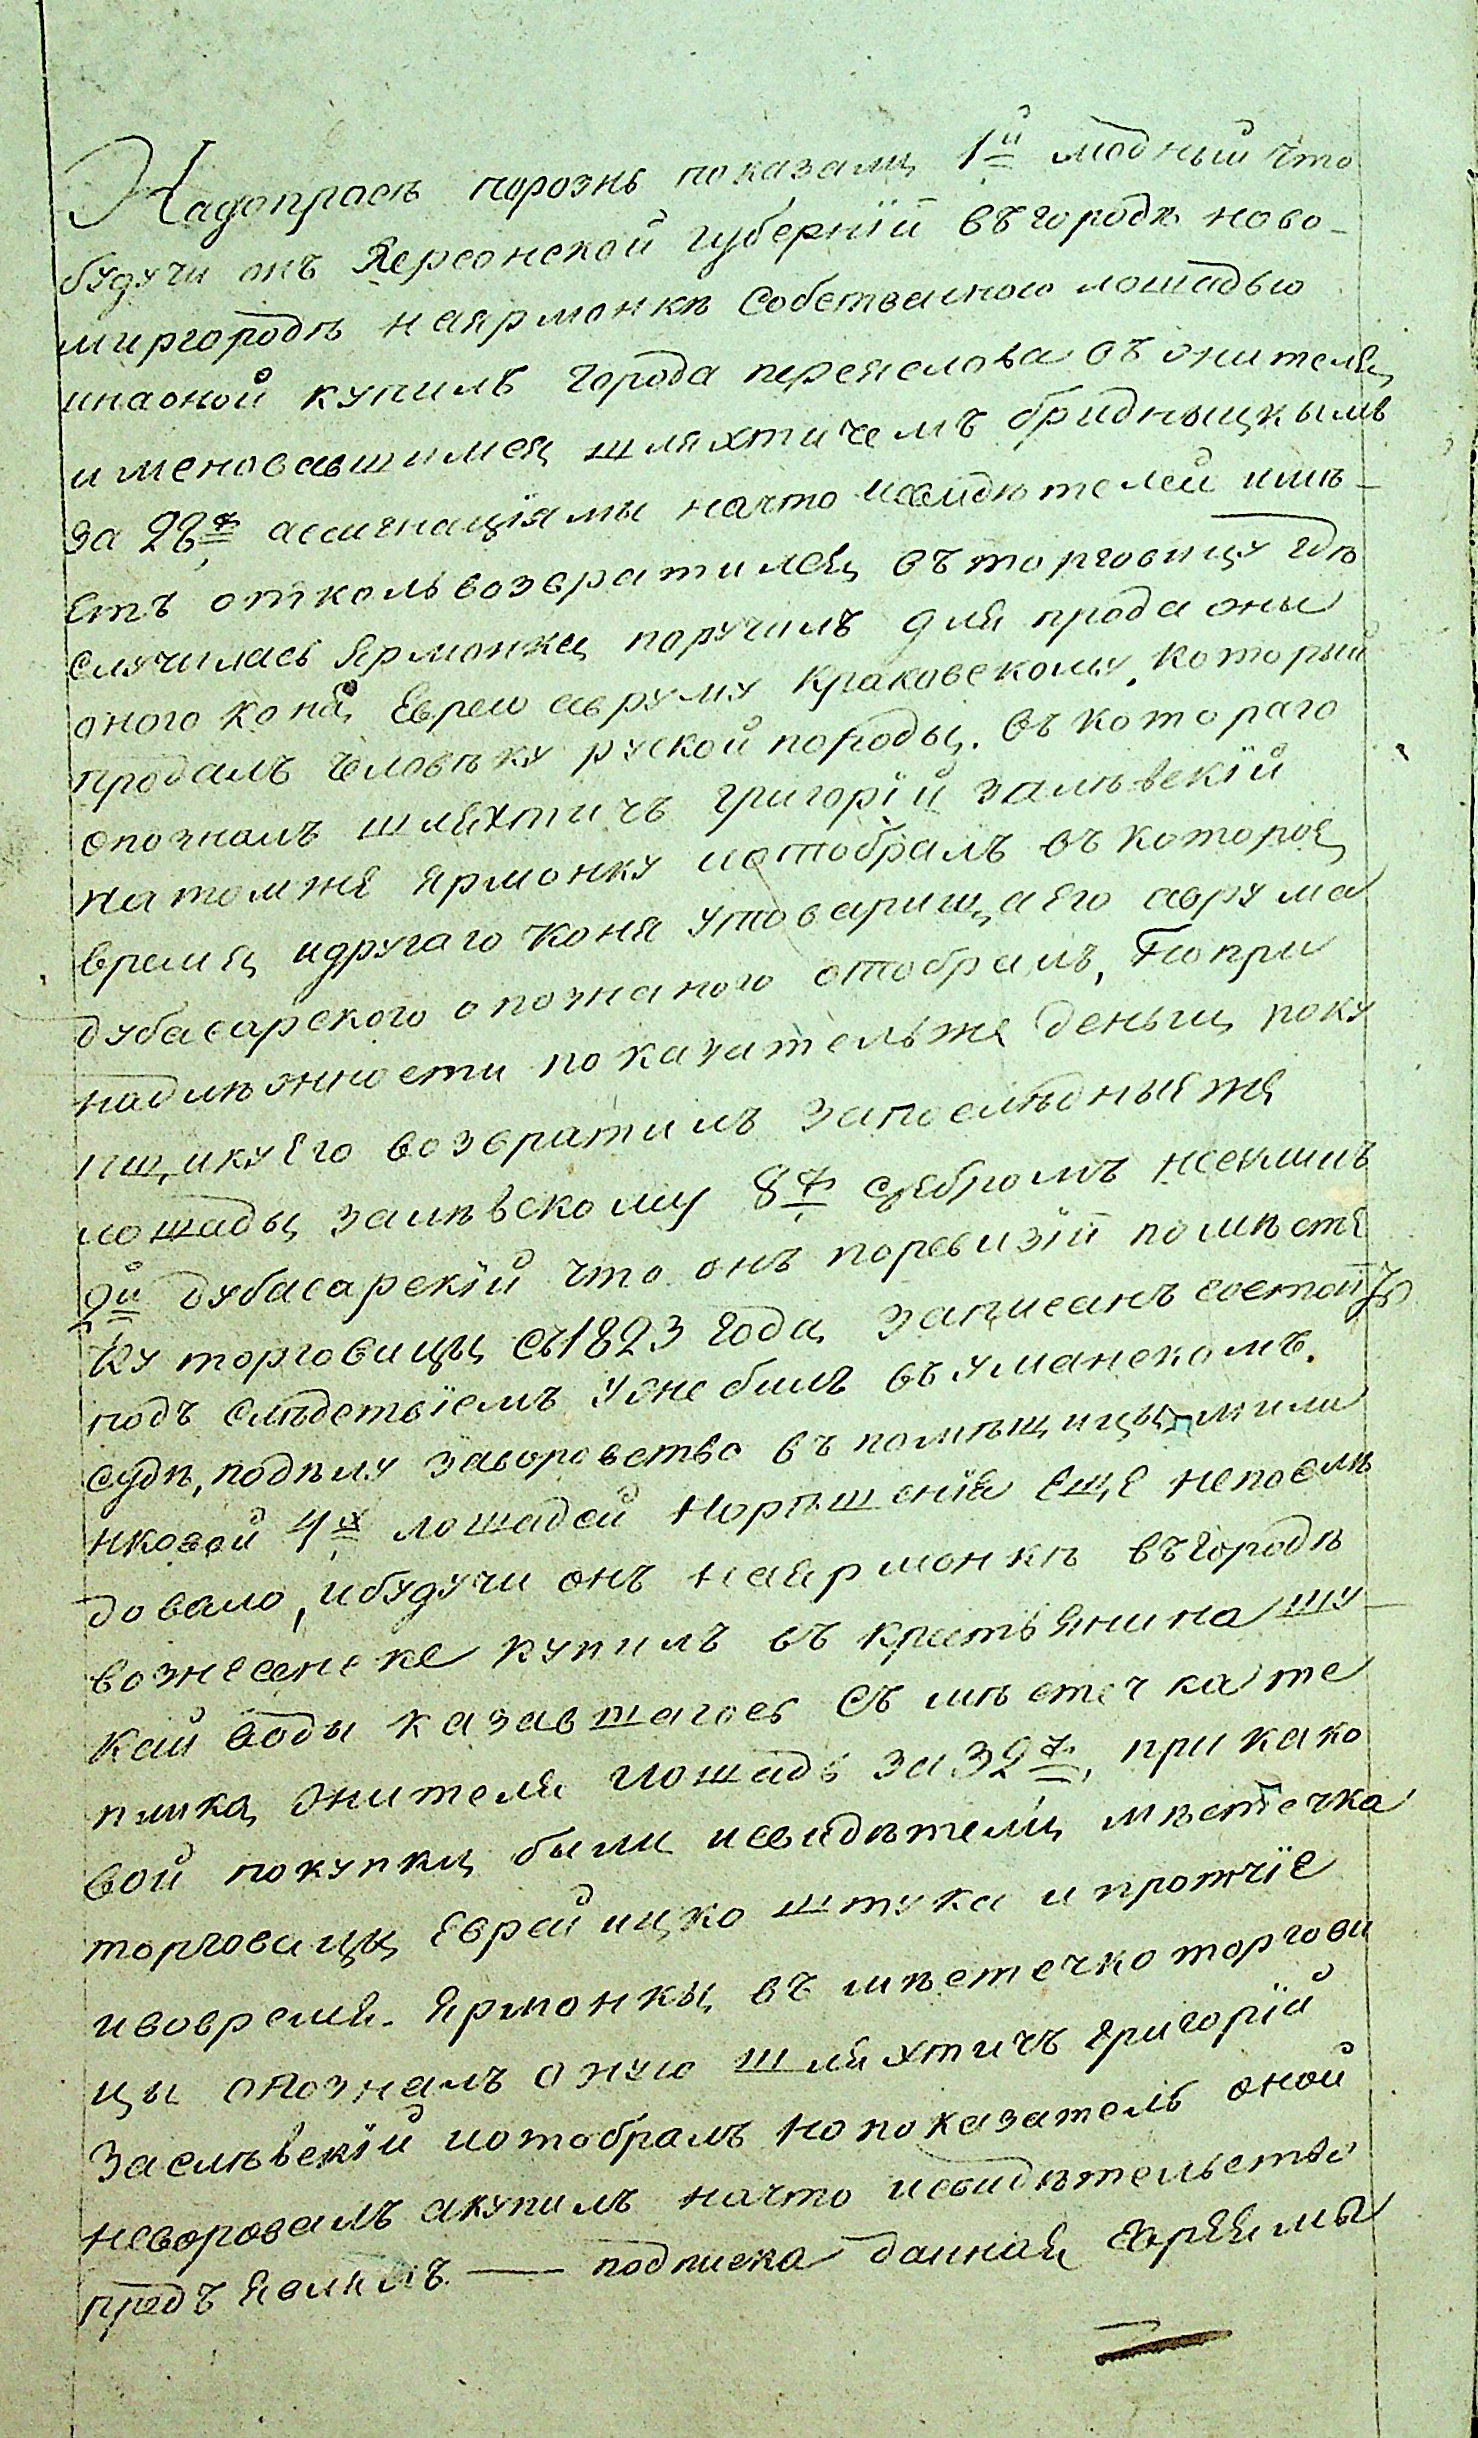 Надопросѣ порознь показали 1й модный что
будучи онъ Херсонской губернїй въгородѣ ново-
миргородѣ наярмонкѣ собственною лошадью
инаоной купилъ города переяслова въ жителя
именовавшимся шляхтичемъ бридныцкымъ
за 28р ассигнацїямы начто исвидѣтелей имѣ-
етъ отколь возвратился въ торговицу гдѣ
случилась ярмонка поручилъ для продажы
оного коня Еврею авруму краковскому, который
продалъ человѣку руской породы. въ котораго
опозналъ шляхтичъ григорїй залѣвскїй
натомже ярмонку иотобралъ въ которое
время идругаго коня утоварища его аврума
дубасарского опознаного отобралъ, Попри
надлѣжности показательже деньги поку
пщику его возвратилъ запослѣдныеже
лошады залѣвскому 8р сребромъ
2й дубасарскїй что онъ поревизїй помѣсте
ку торговицы съ1823 года записанъ состойтъ
подъ слѣдствїемъ уже билъ въ уманскомъ.
судѣ, подѣлу заворовство въ помѣщицы мили
нковой 4х лошадей норѣшенїя еще непослѣ
довало, ибудучи онъ наярмонкѣ въгородѣ
вознесенске купилъ въ крестьянина шу-
кай воды казавшагось съ мѣстечка те
плика жителя лошадь за 32р, при како
вой покупки были исвидѣтели мѣстечка
торговицы Еврей ицко штука и протчїе
ивовремя ярмонкы въ мѣстечко торгови
цы опозналъ оную шляхтичъ григорїй
заслѣвскїй иотобралъ но показатель оной
неворовалъ акупилъ начто исвидѣтельство
предъявляетъ — подписка данная Евреямы